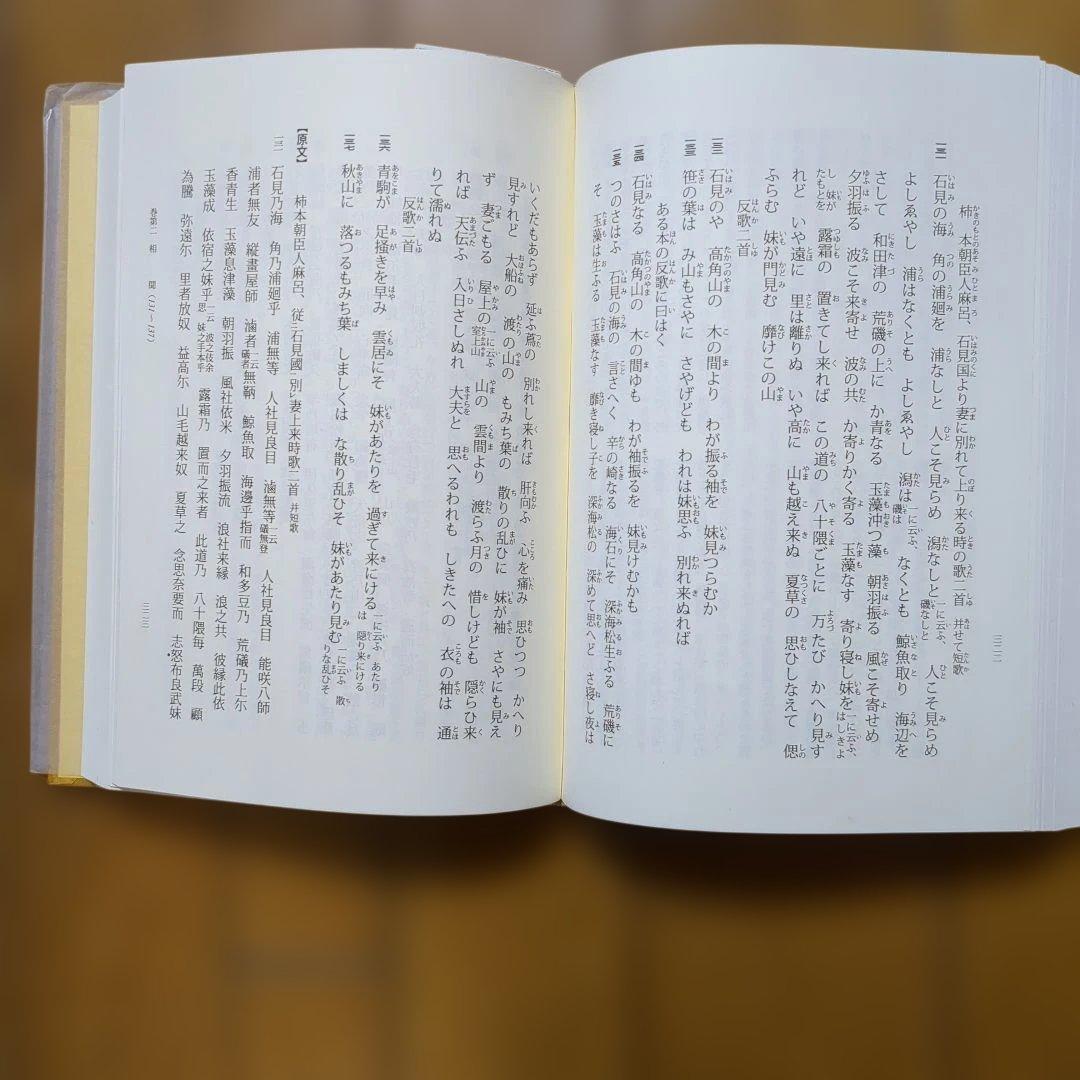 柿本朝臣人麻呂、石見国より妻に別れて上り来る時の歌二首 并せて短歌
一三一 石見の海 角の浦廻を 浦なしと 人こそ見らめ 潟なしと 一に云ふ、磯なしと 人こそ見らめ
よしゑやし 浦はなくとも よしゑやし 潟は 一に云ふ、磯は なくとも 鯨魚取り 海辺を
さして 和田津の 荒磯の上に か青なる 玉藻沖つ藻 朝羽振る 風こそ寄せめ
夕羽振る 波こそ来寄せ 波の共 か寄りかく寄る 玉藻なす 寄り寝し妹を 一に云ふ、はしきよ
し 妹がたもとを 露霜の 置きてし来れば この道の 八十隈ごとに 万たび かへり見す
れど いや遠に 里は離りぬ いや高に 山も越え来ぬ 夏草の 思ひしなえて 偲
ふらむ 妹が門見む 靡けこの山
反歌二首
一三二 石見のや 高角山の 木の間より わが振る袖を 妹見つらむか
一三三 笹の葉は み山もさやに さやげども われは妹思ふ 別れ来ぬれば
ある本の反歌に曰はく
一三四 石見なる 高角山の 木の間ゆも わが袖振るを 妹見けむかも
一三五 つのさはふ 石見の海の 言さへく 辛の崎なる 海石にそ 深海松生ふる 荒磯に
そ 玉藻は生ふる 玉藻なす 靡き寝し子を 深海松の 深めて思へど さ寝し夜は
三二二
いくだもあらず 延ふ蔦の 別れし来れば 肝向ふ 心を痛み 思ひつつ かへり
見すれど 大船の 渡の山の もみち葉の 散りの乱ひに 妹が袖 さやにも見え
ず 妻ごもる 屋上の 一に云ふ 室上山 山の 雲間より 渡らふ月の 惜しけども 隠らひ来
れば 天伝ふ 入日さしぬれ 大夫と 思へるわれも しきたへの 衣の袖は 通
りて濡れぬ
反歌二首
一三六 青駒が 足掻きを早み 雲居にそ 妹があたりを 過ぎて来にける 一に云ふ あたりは 隠り来にける
一三七 秋山に 落つるもみち葉 しましくは な散り乱ひそ 妹があたり見む 一に云ふ 散りな乱ひそ
【原文】
柿本朝臣人麻呂、従二石見國一別レ妻上来時歌二首 并短歌
一三一 石見乃海 角乃浦廻乎 浦無等 人社見良目 滷無等 一云 礒無登 人社見良目 能咲八師
浦者無友 縦畫屋師 滷者 一云 礒者 無鞆 鯨魚取 海邊乎指而 和多豆乃 荒礒乃上尓
香青生 玉藻息津藻 朝羽振 風社依米 夕羽振流 浪社来縁 浪之共 彼縁此依
玉藻成 依宿之妹乎 一云 波之伎余思 妹之手本乎 露霜乃 置而之来者 此道乃 八十隈毎 萬段 顧
為騰 弥遠尓 里者放奴 益高尓 山毛越来奴 夏草之 念思奈要而 志怒布良武妹
巻第二 相聞(131〜137)
三二三